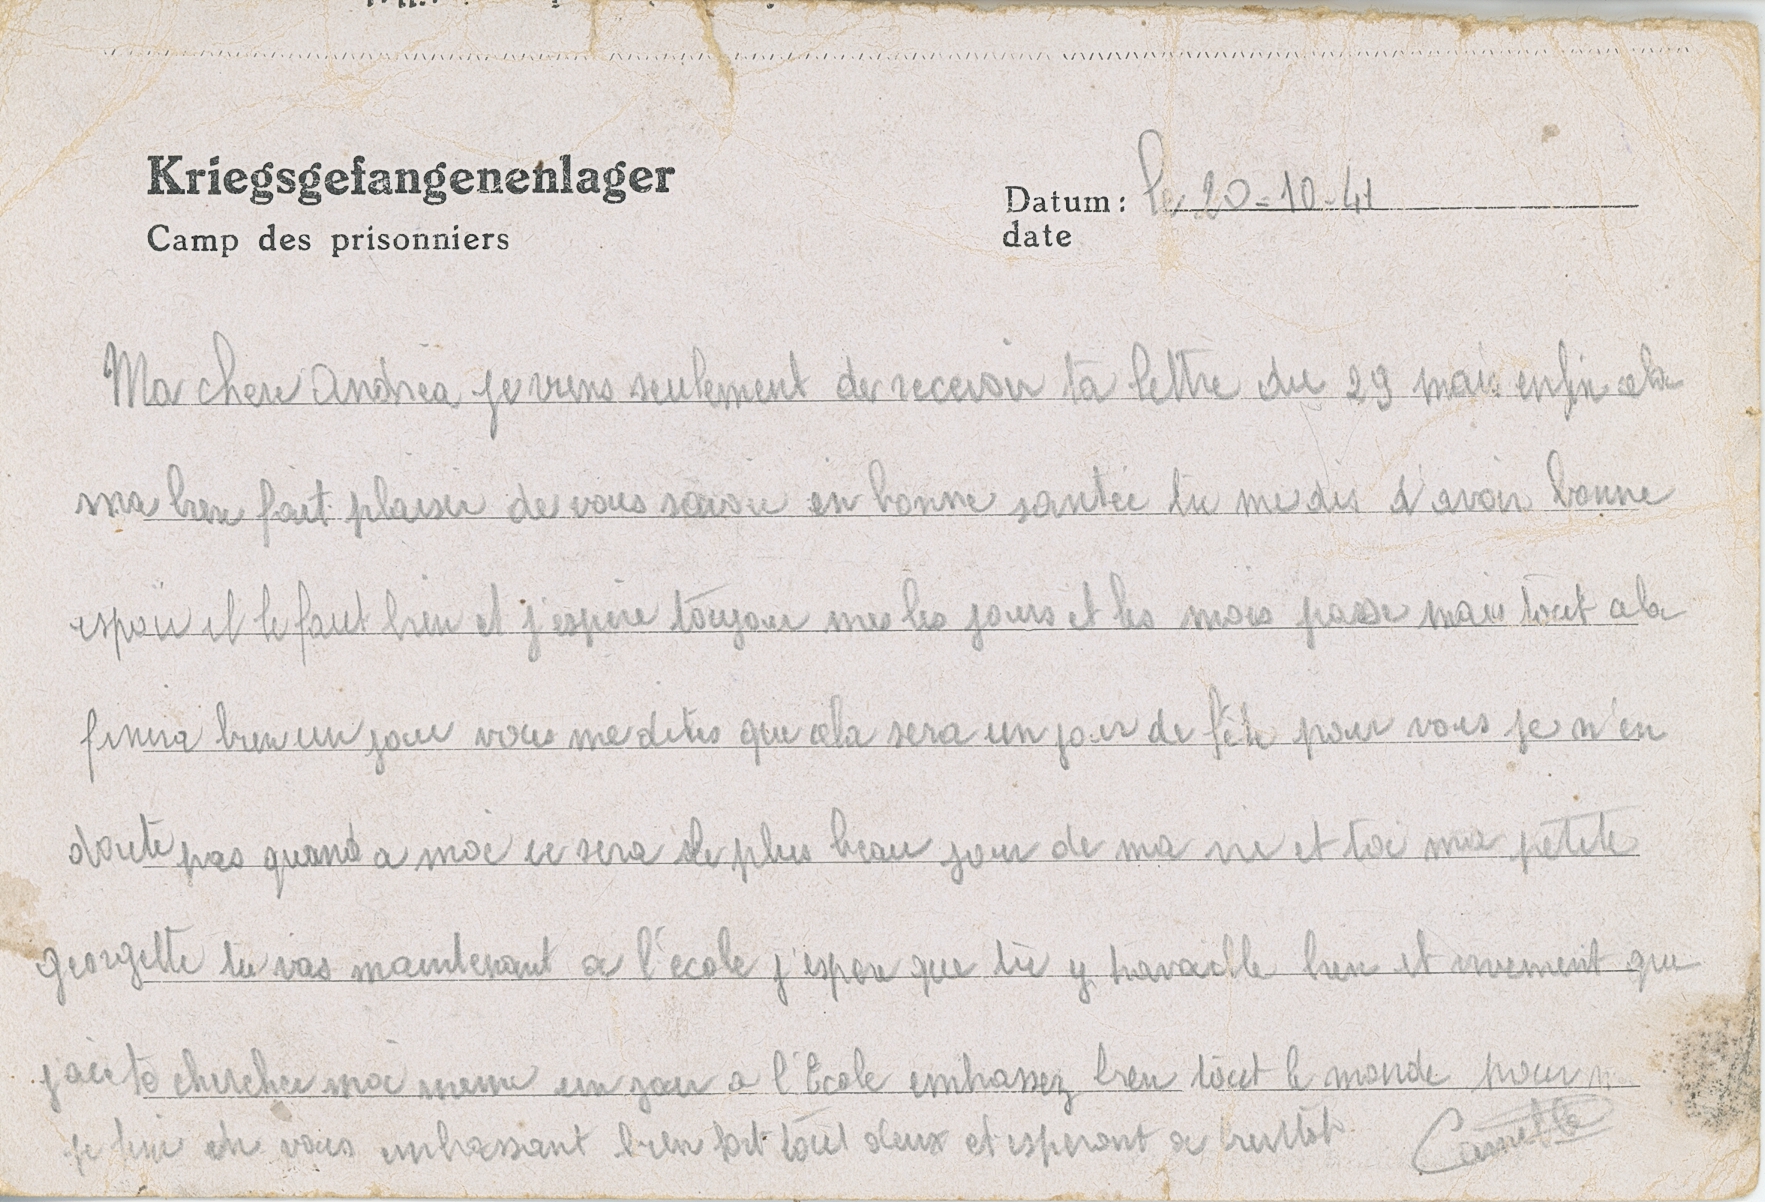 Kriegsgefangenenlager
Camp des prisonniers
Datum: le 20-10-41
date
Ma chere Andréa je viens seulement de recevoir ta lettre du 29 mais enfin cela
ma bien fait plaisir de vous savoir en bonne santée tu me dis d'avoir bonne
espoir il le faut bien et j'espère toujour mes les jours et les mois passe mais tout cela
finira bien un jour vous me dites que cela sera un jour de fête pour vous je n'en
doute pas quand a moi ce sera le plus beau jour de ma vie et toi ma petite
georgette tu vas maintenant a l'école j'espere que tu y travaille bien et vivement que
j'aie te chercher moi meme un jour a l'École embassez bien tout le monde pour
je fini en vous embassant bien fort tout deux et esperant a